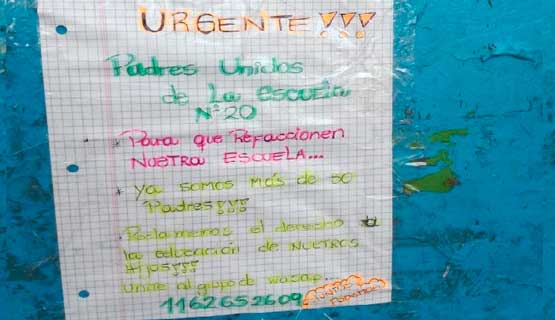 URGENTE!!!
Padres Unidos
de La escuela
N°20
* Para que Refaccionen
NUESTRA ESCUELA...
* Ya somos más de 50
Padres!!!
. Reclamamos el derecho a
la educación de NUETROS
Hijos!!!
Unite al grupo de wasap...
1162652609
UNITE